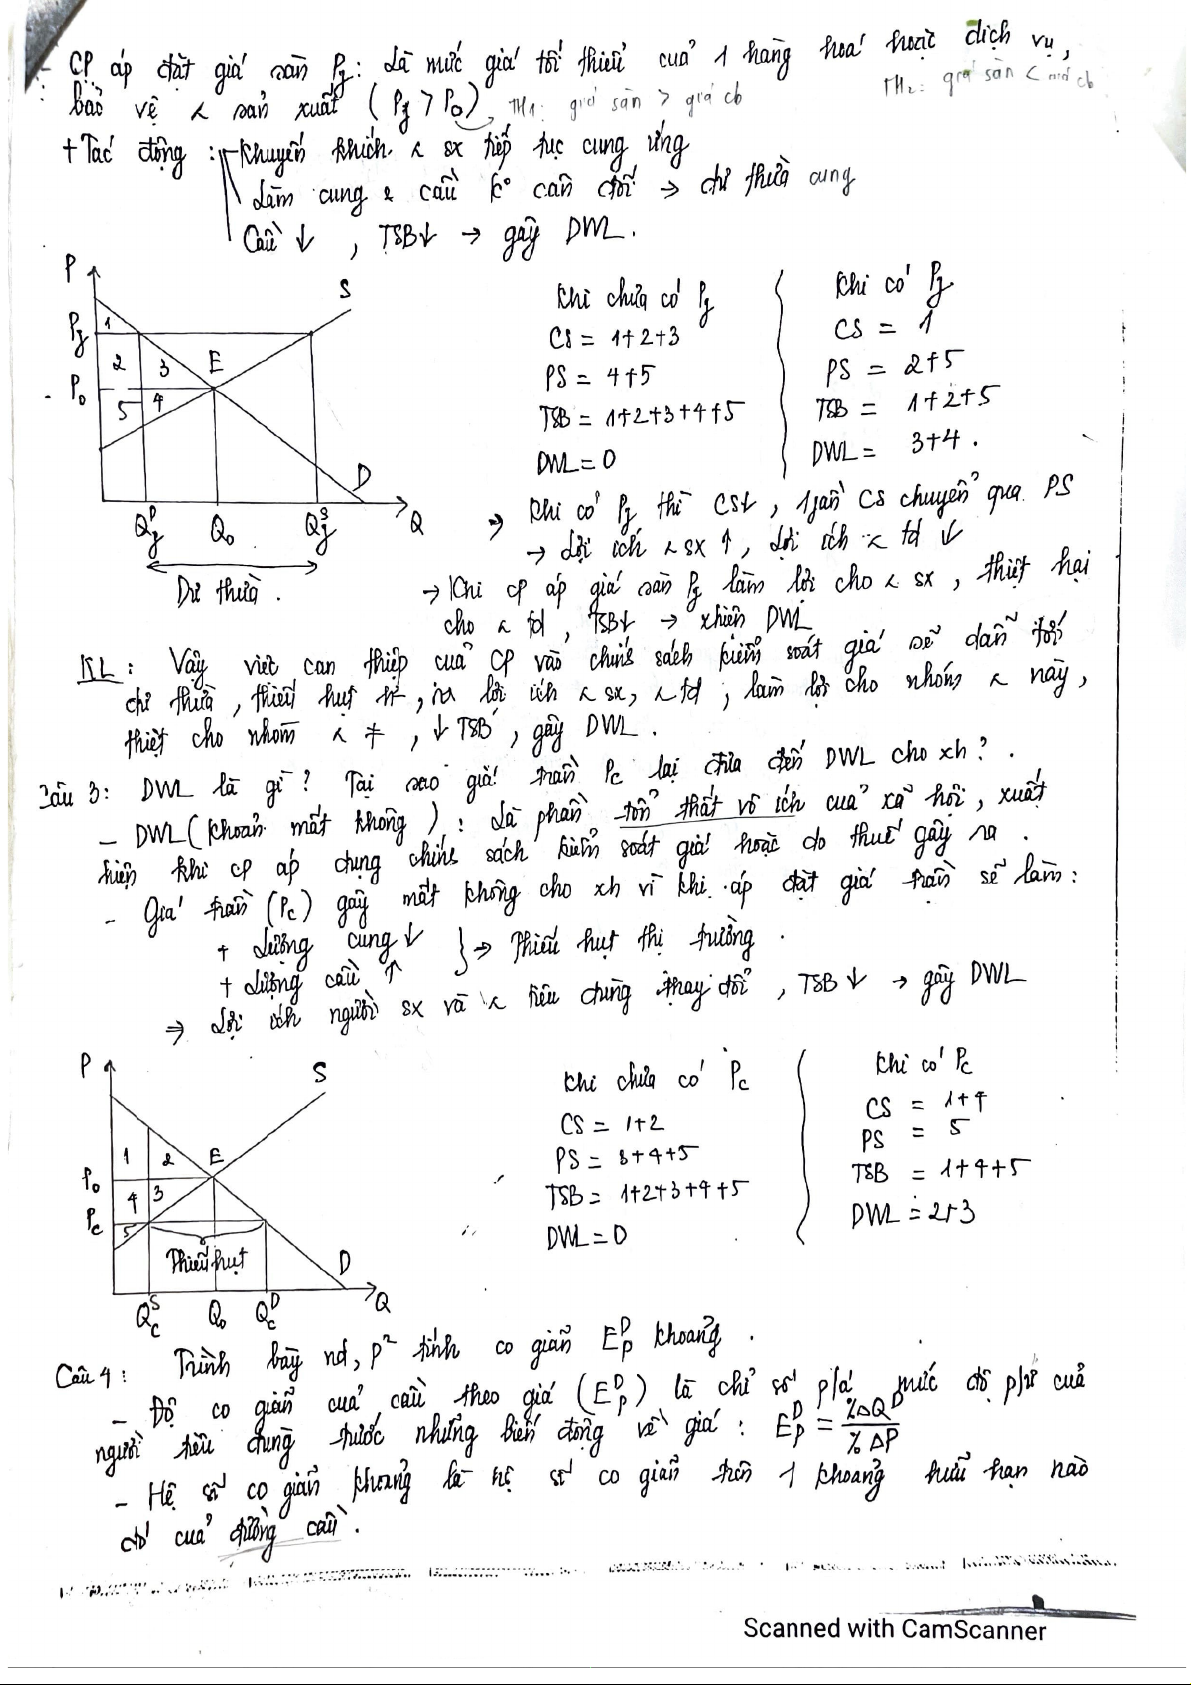 - CP áp đặt giá sàn Pf: Là mức giá tối thiểu của 1 hàng hoá hoặc dịch vụ,
bảo vệ < sản xuất (Pf > P₀), TH1: giá sàn > giá cb TH2: giá sàn < giá cb
+ Tác động : - Khuyến khích < sx tiếp tục cung ứng
Làm cung & cầu k° cân đối → dư thừa cung
Cầu ↓ , TSB↓ → gây DWL.
P
S
Pf
1
2 3 E
P₀
5 4
D
Q
Qf^D Q₀ Qf^S
Dư thừa .
Khi chưa có Pf
CS = 1+2+3
PS = 4+5
TSB = 1+2+3+4+5
DWL = 0
Khi có Pf
CS = 1
PS = 2+5
TSB = 1+2+5
DWL = 3+4 .
⇒ Khi có Pf thì CS↓ , 1 phần CS chuyển qua PS
→ Lợi ích < sx ↑ , lợi ích < td ↓
→ Khi CP áp giá sàn Pf làm lợi cho < sx , thiệt hại
cho < td , TSB↓ → xhiện DWL
KL : Vậy việc can thiệp của CP vào chính sách kiểm soát giá sẽ dẫn tới
dư thừa , thiếu hụt lợi ích < sx, < td ; làm lợi cho nhóm < này ,
thiệt cho nhóm < ≠ , ↓ TSB , gây DWL .
Câu 3 : DWL là gì ? Tại sao giá trần Pc lại đưa đến DWL cho xh ? .
- DWL (khoản mất không) : Là phần tổn thất vô ích của xã hội , xuất
hiện khi CP áp dụng chính sách kiểm soát giá hoặc do thuế gây ra .
- Giá trần (Pc) gây mất không cho xh vì khi áp đặt giá trần sẽ làm :
+ Lượng cung ↓ } ⇒ Thiếu hụt thị trường .
+ Lượng cầu ↑
⇒ Lợi ích người sx và < tiêu dùng thay đổi , TSB ↓ → gây DWL
P
S
1 2 E
P₀
4 3
Pc
5
Thiếu hụt
D
Q
Qc^S Q₀ Qc^D
Khi chưa có Pc
CS = 1+2
PS = 3+4+5
TSB = 1+2+3+4+5
DWL = 0
Khi có Pc
CS = 1+4
PS = 5
TSB = 1+4+5
DWL = 2+3
Câu 4 : Trình bày nd, p² tính co giãn E_P^D khoảng .
- Độ co giãn của cầu theo giá (E_P^D) là chỉ số p/á mức độ p/ứ của
người tiêu dùng trước những biến động về giá : E_P^D = %ΔQ^D / %ΔP
- Hệ số co giãn khoảng là hệ số co giãn trên 1 khoảng hữu hạn nào
đó của đường cầu .
Scanned with CamScanner